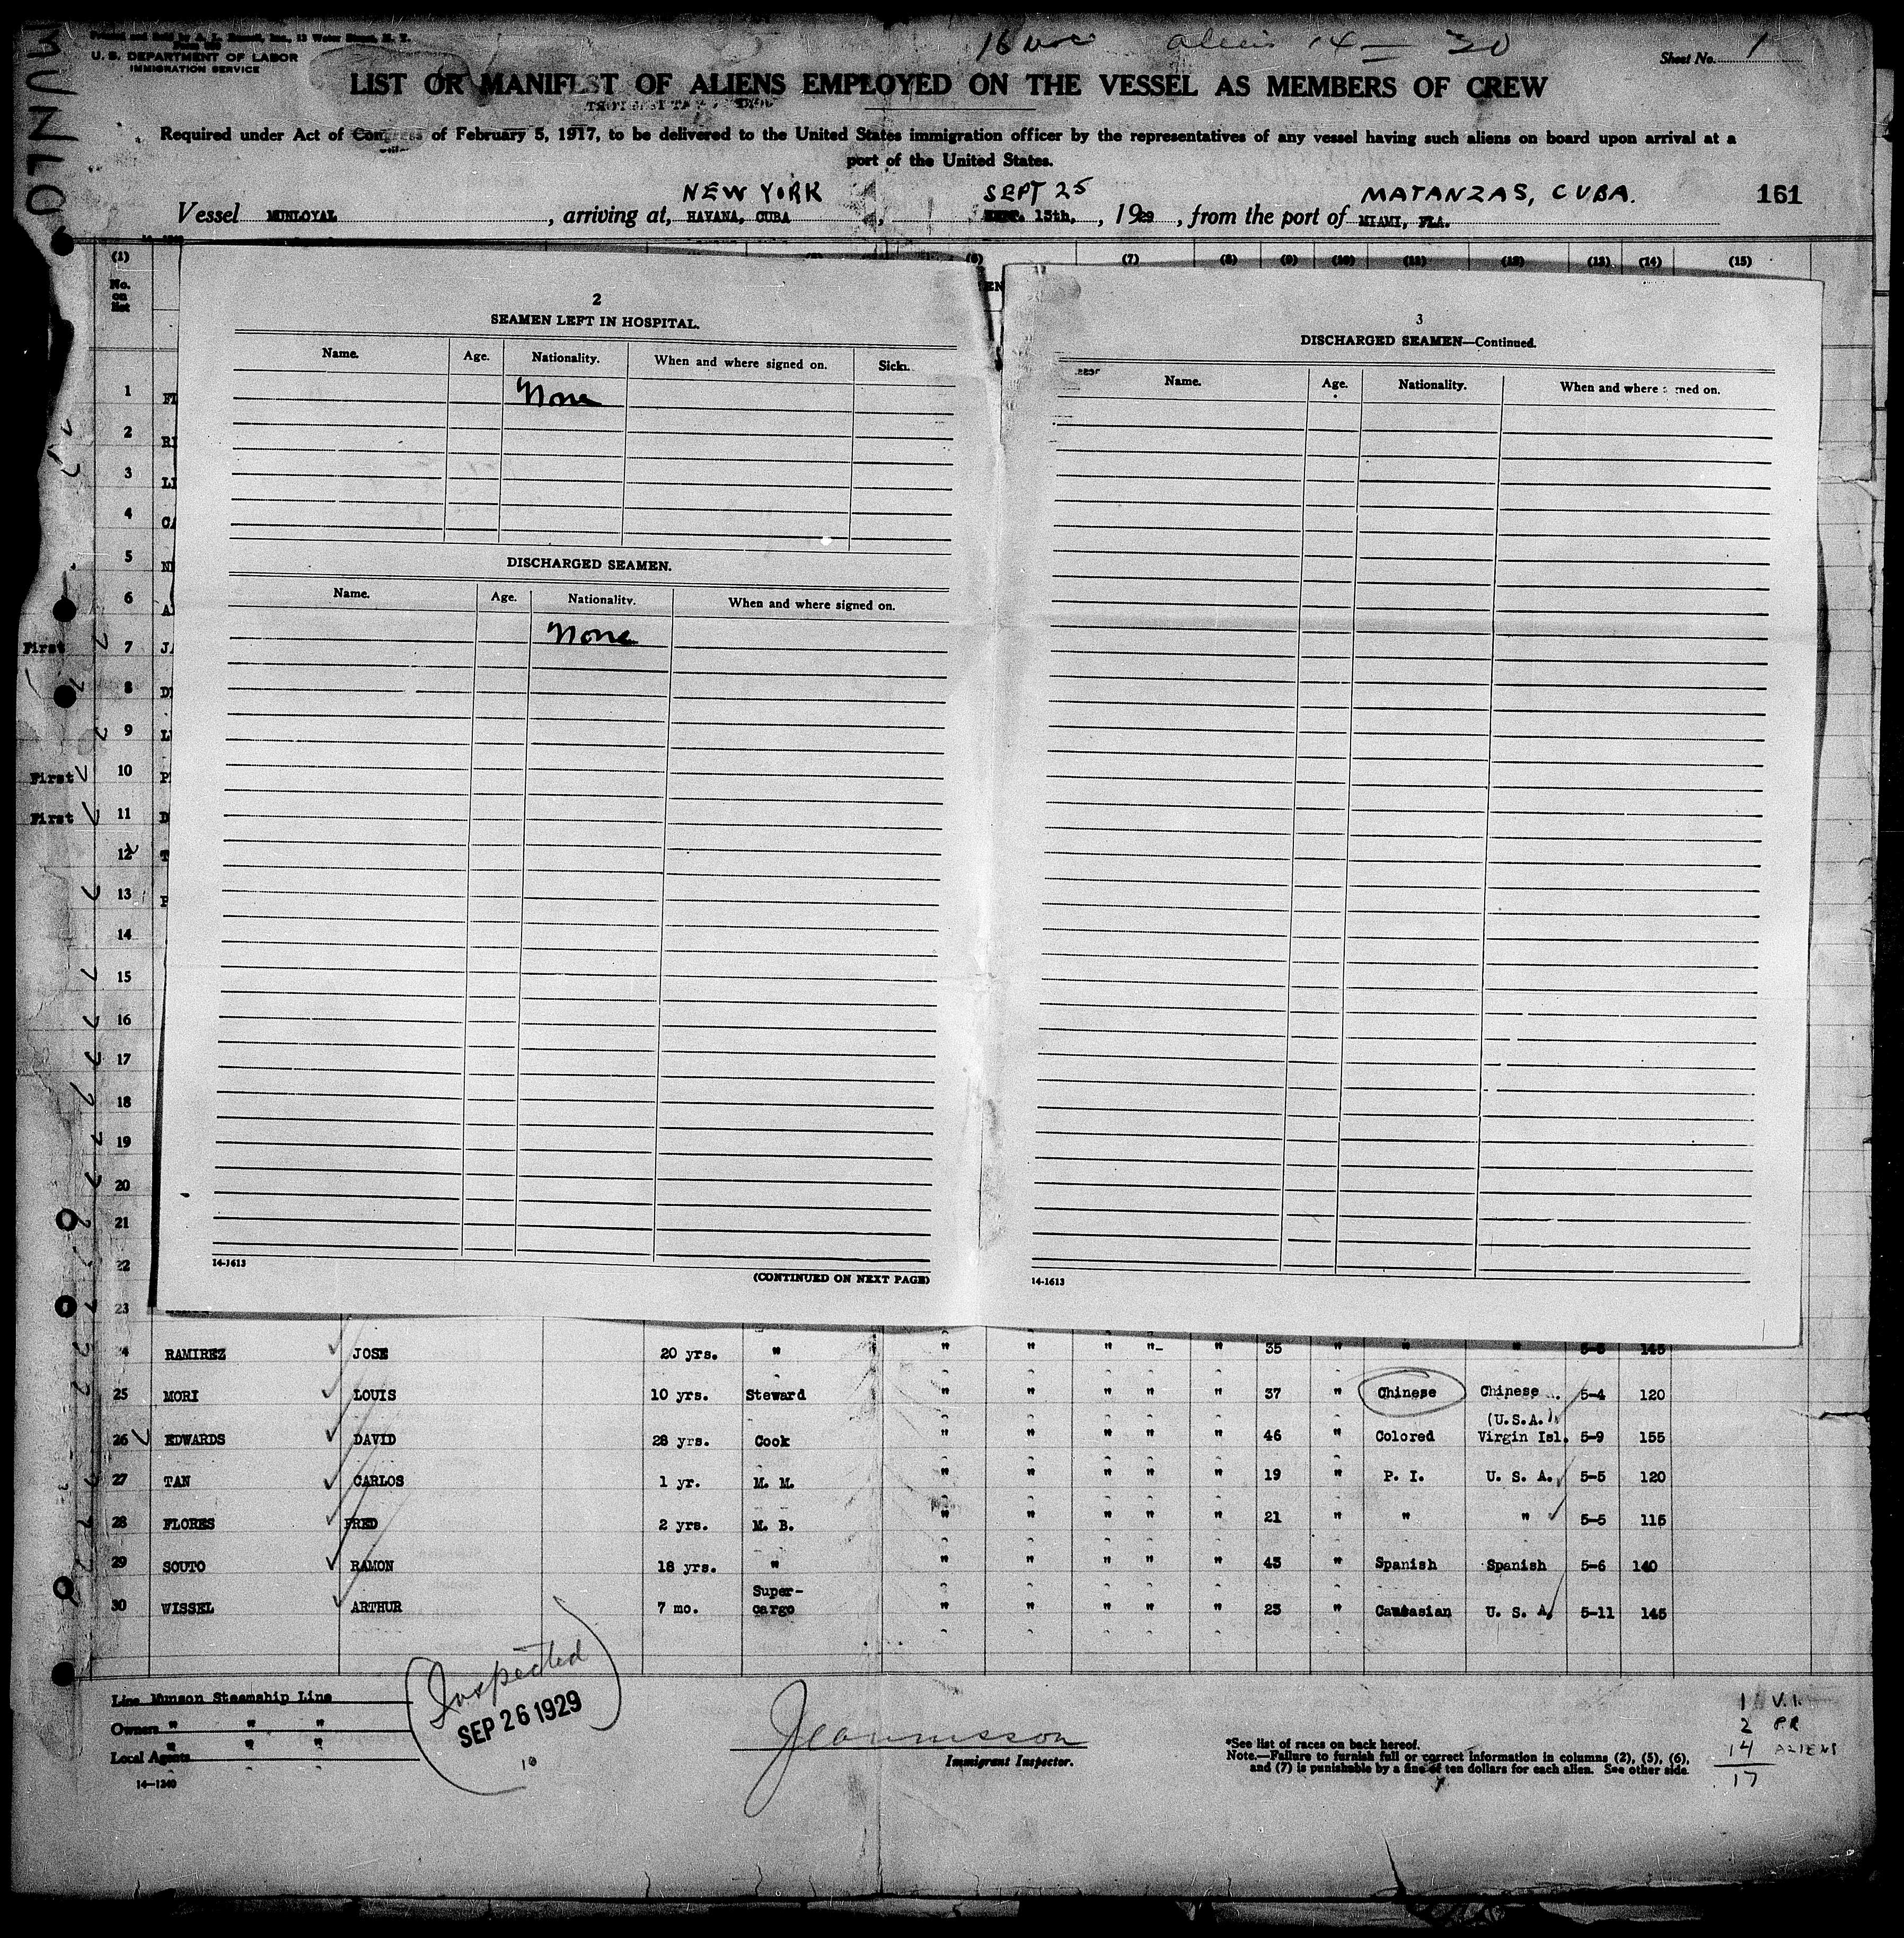 MUNLO
U. S. DEPARTMENT OF LABOR
IMMIGRATION SERVICE
Sheet No. 1
LIST OR MANIFEST OF ALIENS EMPLOYED ON THE VESSEL AS MEMBERS OF CREW
Required under Act of Congress of February 5, 1917, to be delivered to the United States immigration officer by the representatives of any vessel having such aliens on board upon arrival at a
port of the United States.
NEW YORK SEPT 25 MATANZAS, CUBA. 161
Vessel MUNLOYAL, arriving at, HAVANA, CUBA, 15th, 1929, from the port of MIAMI, FLA.
(1) (6) (7) (8) (9) (10) (11) (12) (13) (14) (15)
No. on list
2
SEAMEN LEFT IN HOSPITAL.
Name. Age. Nationality. When and where signed on. Sick.
None
DISCHARGED SEAMEN.
Name. Age. Nationality. When and where signed on.
None
14-1613
(CONTINUED ON NEXT PAGE)
3
DISCHARGED SEAMEN—Continued.
Name. Age. Nationality. When and where signed on.
14-1613
1 FI
2 RI
3 LI
4 CA
5 NI
6 A
First 7 JA
8 DI
9 L
First 10 P
First 11 D
12 T
13
14
15
16
17
18
19
20
21
22
23
4 RAMIREZ JOSE 20 yrs. " " " " " " 35 " " " 5-6 145
25 MORI LOUIS 10 yrs. Steward " " " " " 37 " Chinese Chinese 5-4 120
(U.S.A.)
26 EDWARDS DAVID 28 yrs. Cook " " " " " 46 " Colored Virgin Isl. 5-9 155
27 TAN CARLOS 1 yr. M. M. " " " " " 19 " P. I. U. S. A. 5-5 120
28 FLORES FRED 2 yrs. M. B. " " " " " 21 " " " 5-5 115
29 SOUTO RAMON 18 yrs. " " " " " " 43 " Spanish Spanish 5-6 140
Super-
30 WISSEL ARTHUR 7 mo. cargo " " " " " 23 " Caucasian U. S. A. 5-11 145
Line Munson Steamship Line
Owners " " "
Local Agents " " "
14-1240
Inspected
SEP 26 1929
10
Immigrant Inspector.
*See list of races on back hereof.
Note.—Failure to furnish full or correct information in columns (2), (5), (6),
and (7) is punishable by a fine of ten dollars for each alien. See other side.
1 V.I.
2 P.R
14 ALIENS
17